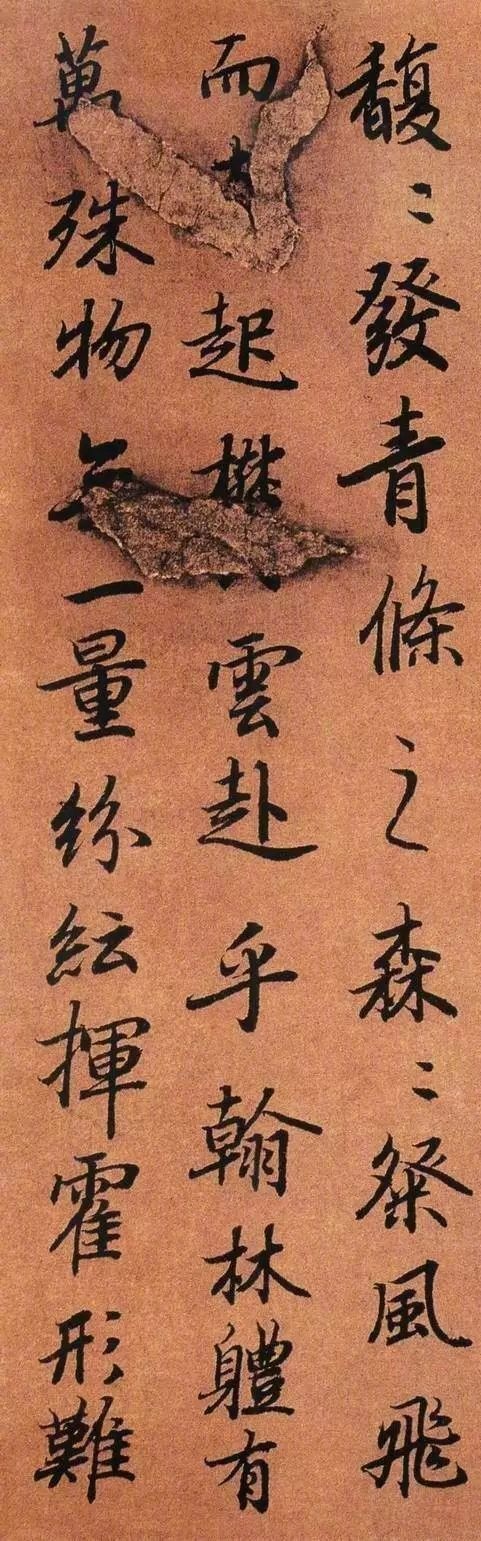 馥〻發青條之森〻粲風飛
而起雲赴乎翰林體有
萬殊物無一量紛紜揮霍形難